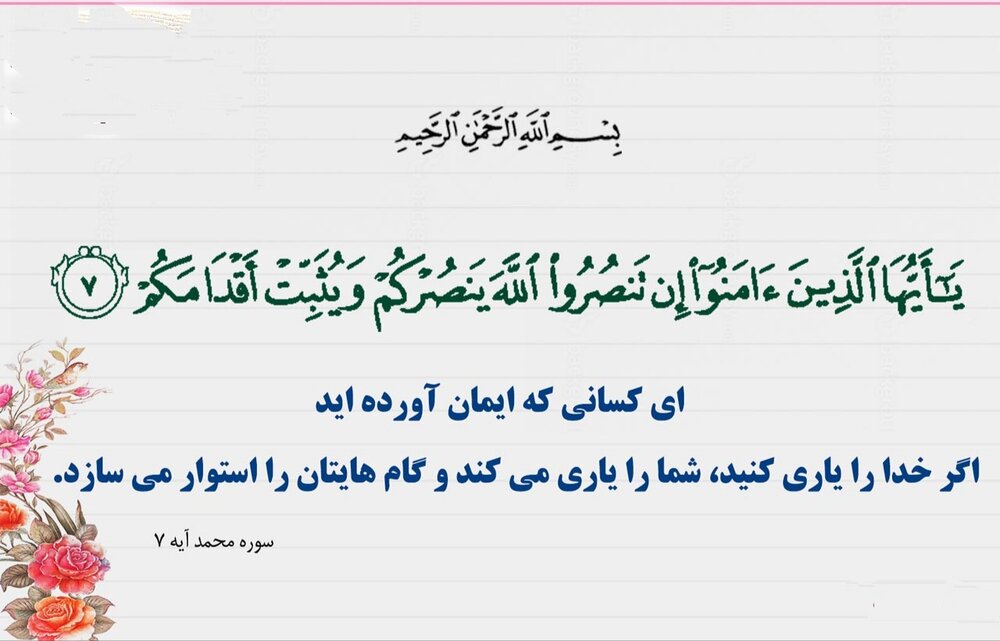 بِسْمِ ٱللَّهِ ٱلرَّحْمَٰنِ ٱلرَّحِيمِ
يَـٰٓأَيُّهَا ٱلَّذِينَ ءَامَنُوٓا۟ إِن تَنصُرُوا۟ ٱللَّهَ يَنصُرْكُمْ وَيُثَبِّتْ أَقْدَامَكُمْ ۷
ای کسانی که ایمان آورده اید
اگر خدا را یاری کنید، شما را یاری می کند و گام هایتان را استوار می سازد.
سوره محمد آیه ۷